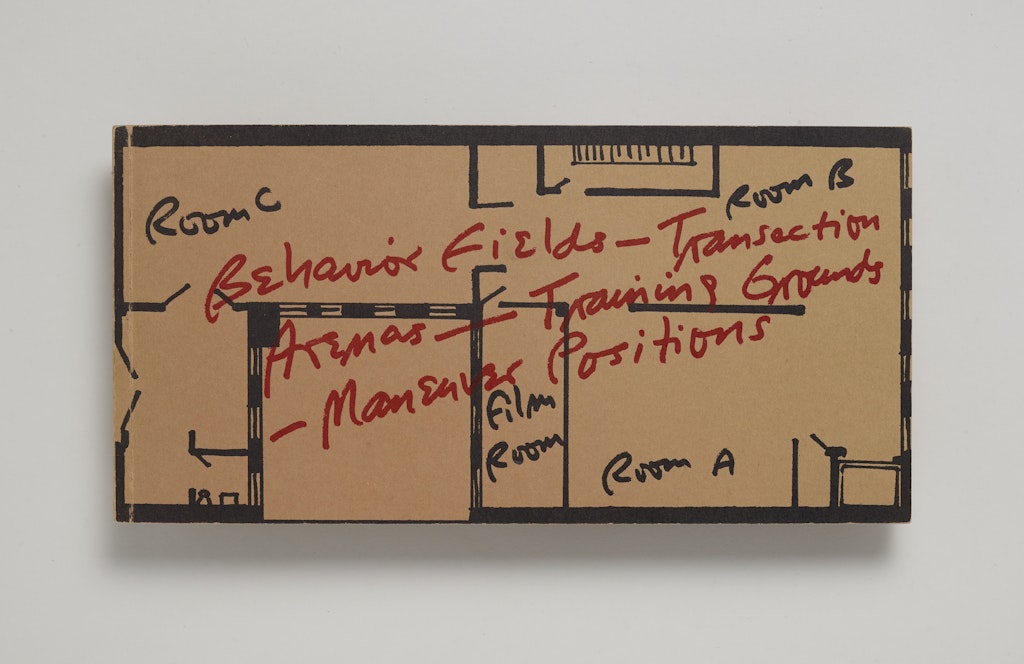 Room C
Room B
Behavior Fields — Transection
Arenas — Training Grounds
— Maneuver Positions
Film
Room
Room A